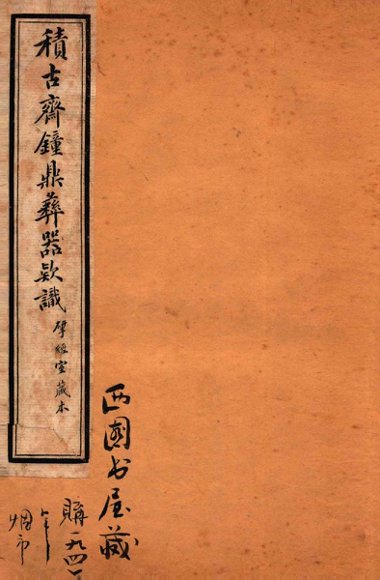 積古齋鐘鼎彝器欵識
揅經室藏本
西園书屋藏
購一九四一
年
烟市